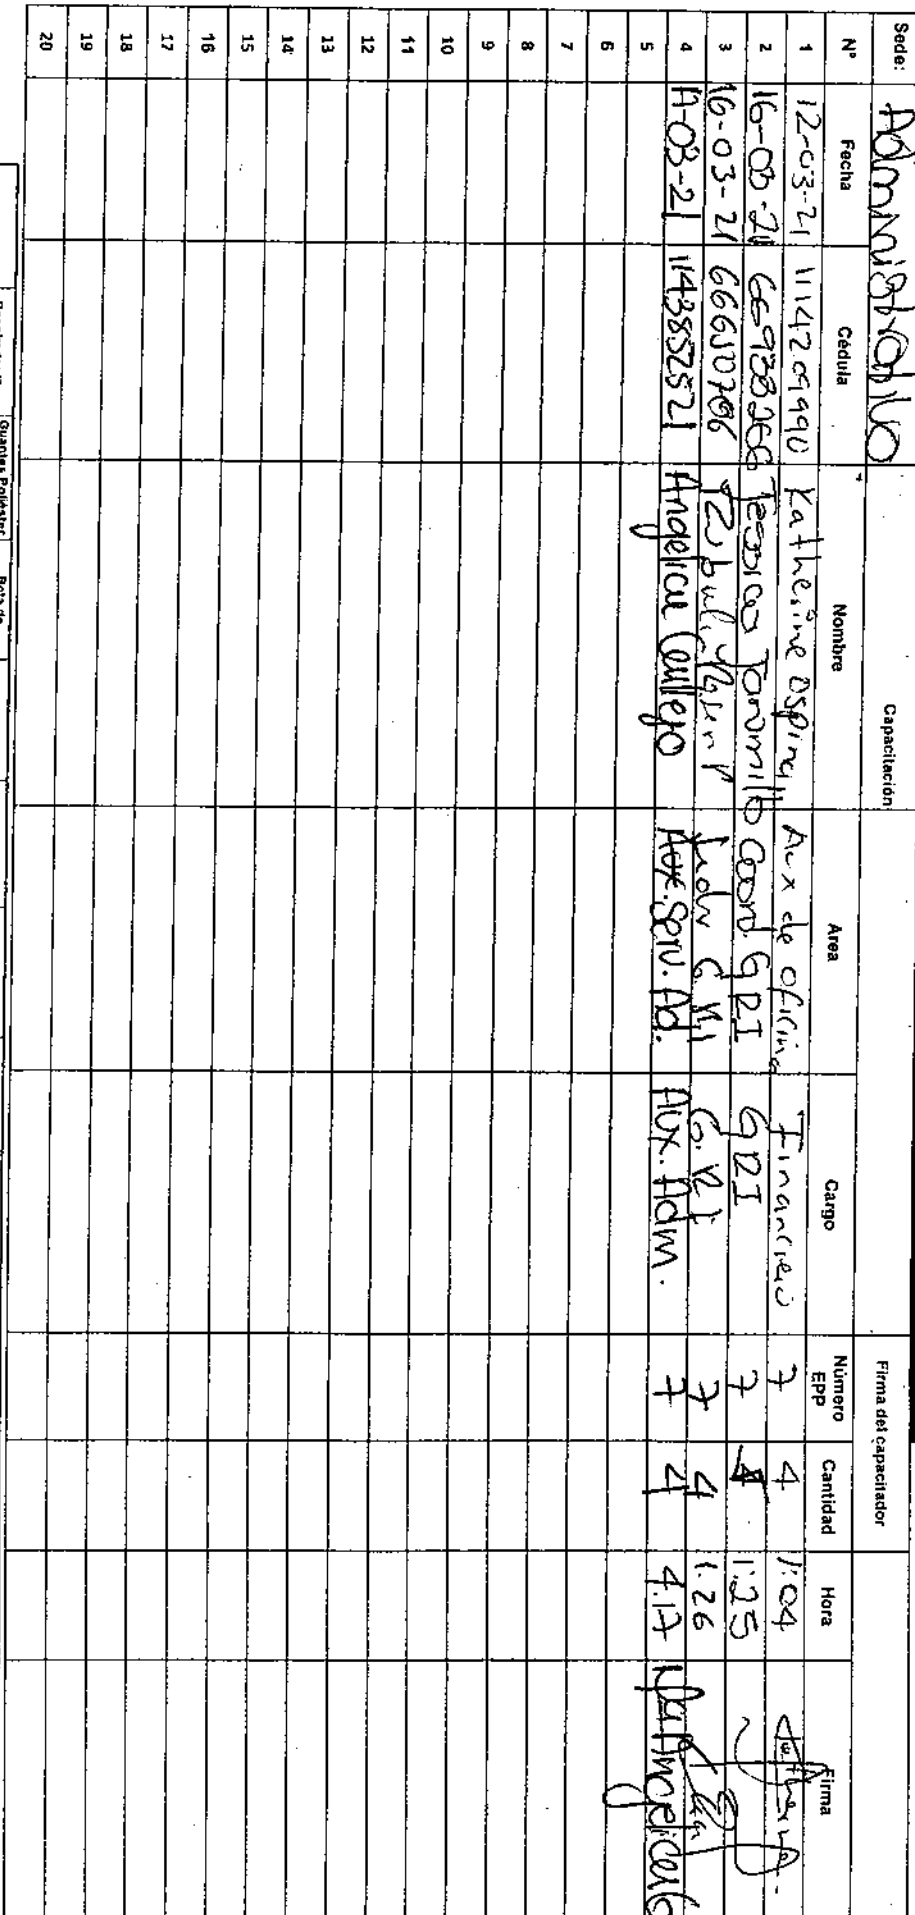 Sede: Administrativo
Capacitación Firma del capacitador
Nº Fecha Cédula Nombre Area Cargo Número EPP Cantidad Hora Firma
1 12-03-21 1114209990 Katherine Ospina Aux de oficina Financiero 7 4 1:04
2 16-03-21 66938266 Jessica Jaramillo Coord GRI GRI 7 4 1:25
3 16-03-21 66650786 G.RI 7 4 1:26
4 17-03-21 1143852521 Angelica Callejo Aux. Serv. Ad. Aux. Adm. 7 4 4.17
5
6
7
8
9
10
11
12
13
14
15
16
17
18
19
20
Guantes Poliéster Bota de